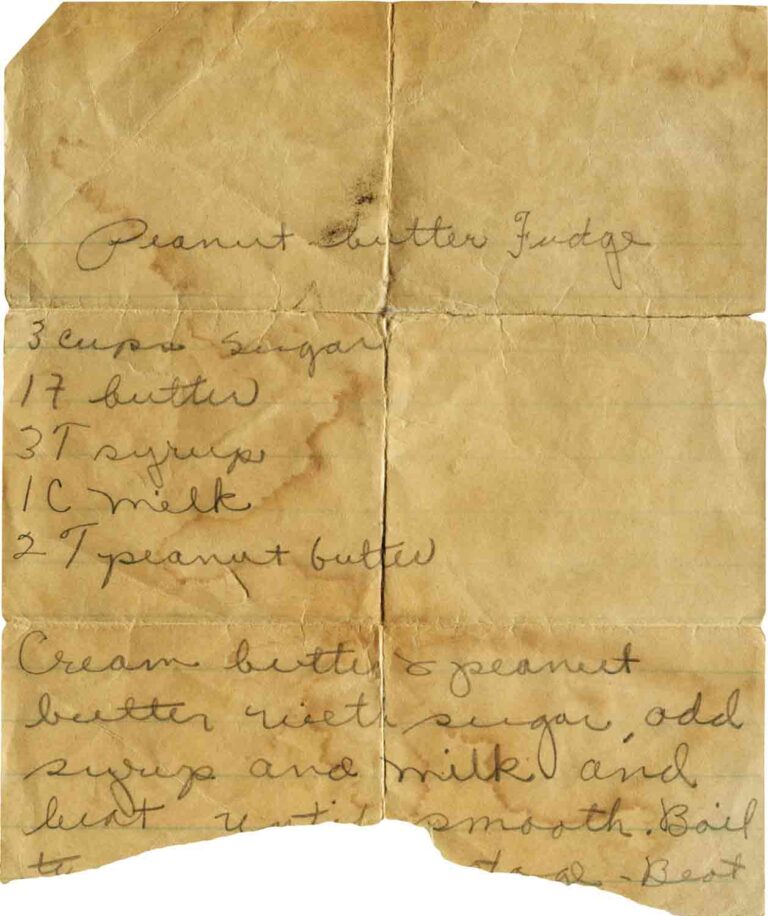 Peanut butter Fudge
3 cups sugar
1 T butter
3 T syrup
1 C milk
2 T peanut butter
Cream butter & peanut
butter with sugar, add
syrup and milk and
beat until smooth. Boil
Beat